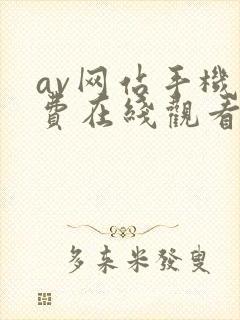 av网佔手機
費在綫觀看
多来米發叟